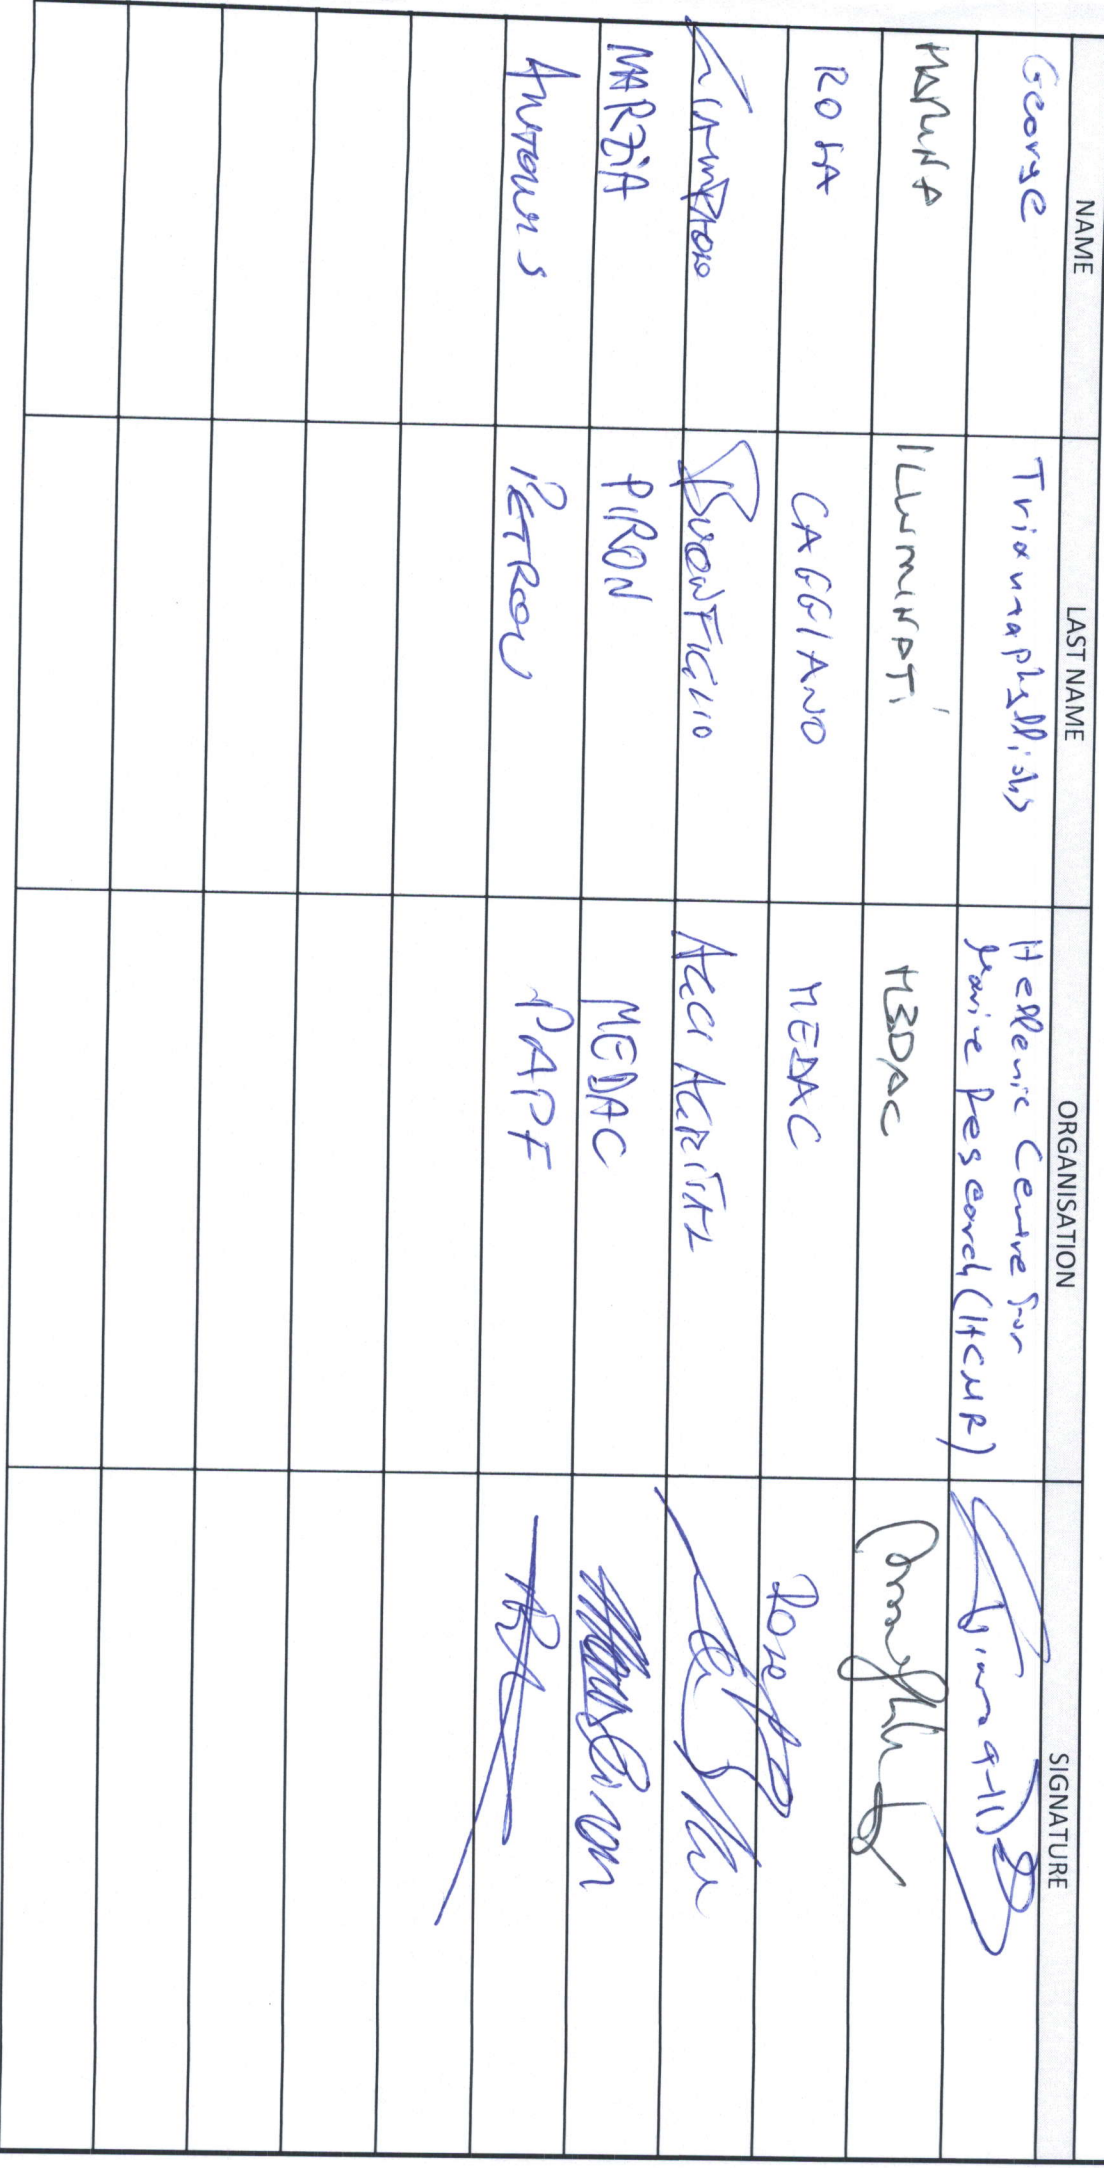 NAME LAST NAME ORGANISATION SIGNATURE
George Triantaphyllidis Hellenic Centre for
Marine Research (HCMR)
MARINA ILLUMINATI MEDAC
ROSA CAGGIANO MEDAC
GIAMPAOLO BUONFIGLIO AGCI AGRITAL
MARZIA PIRON MEDAC
ANTONIS PETROU PAPF